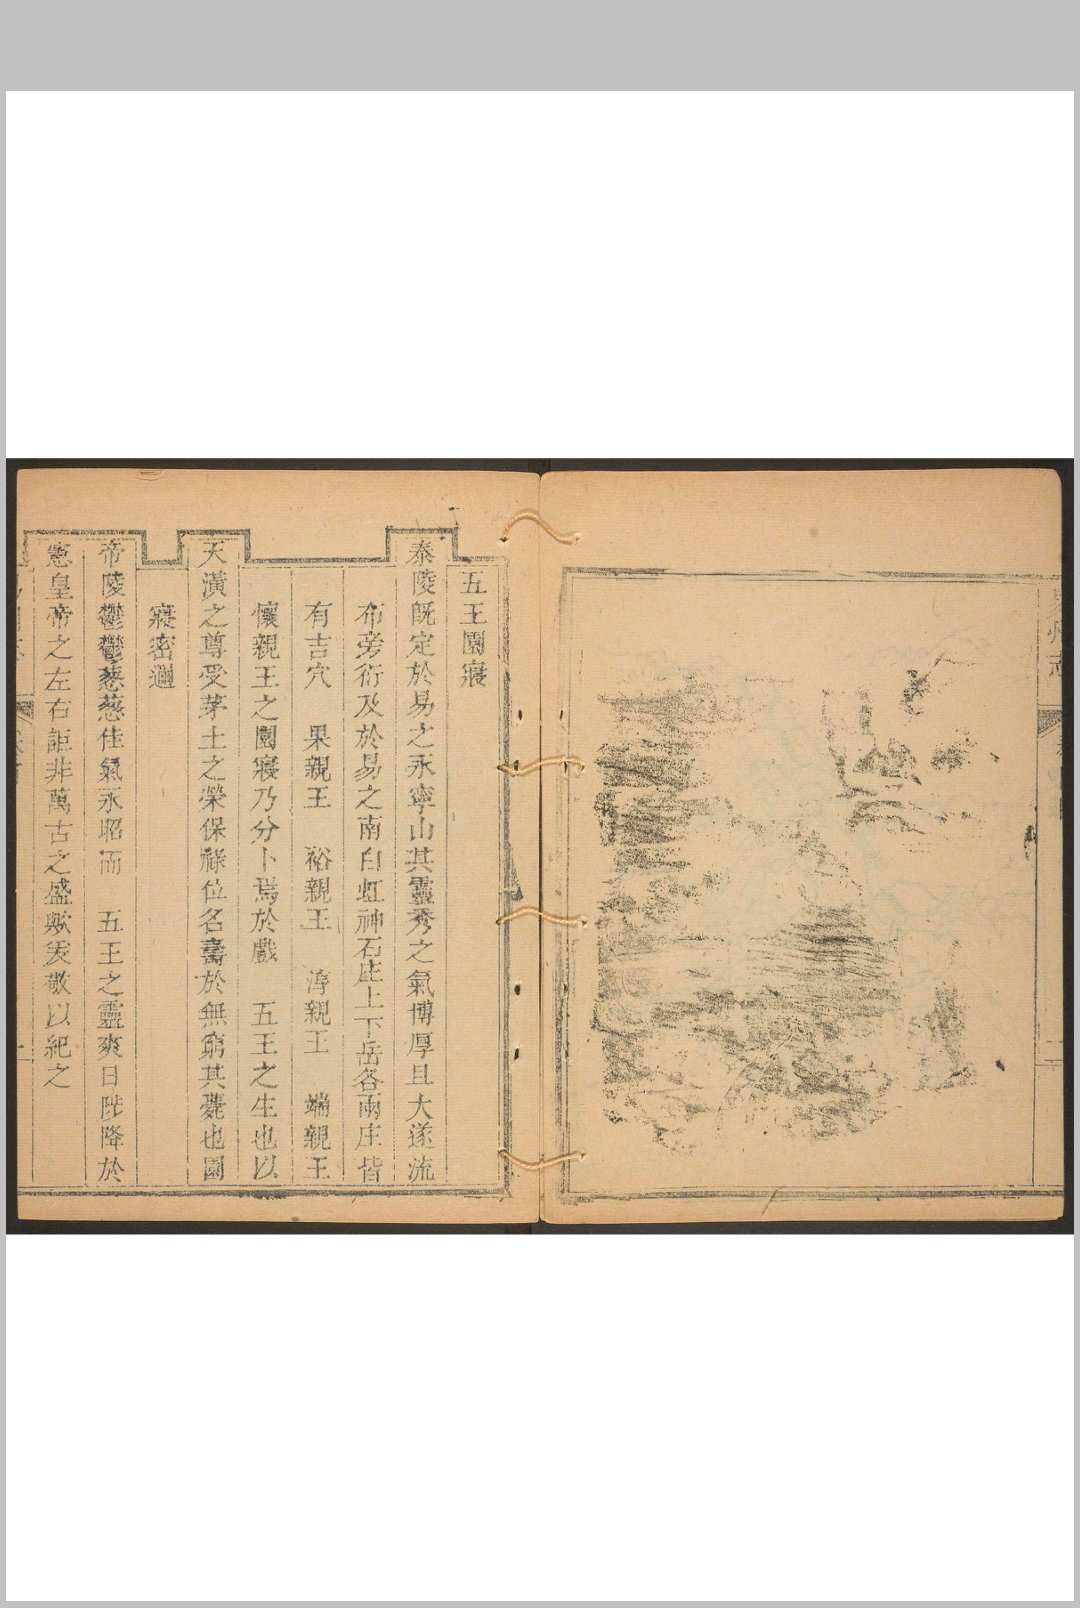 州志
五王園寢
泰陵既定於易之永寧山其靈秀之氣博厚且大遂流
布旁衍及於易之南白虹神石庄上下岳各兩庄皆
有吉穴 果親王 裕親王 淳親王 端親王
懷親王之園寢乃分卜焉於戲 五王之生也以
天潢之尊受茅土之榮保祿位名壽於無窮其薨也園
寢密邇
帝陵鬱鬱蔥蔥佳氣永昭而 五王之靈爽日陟降於
憲皇帝之左右詎非萬古之盛歟爰敬以紀之